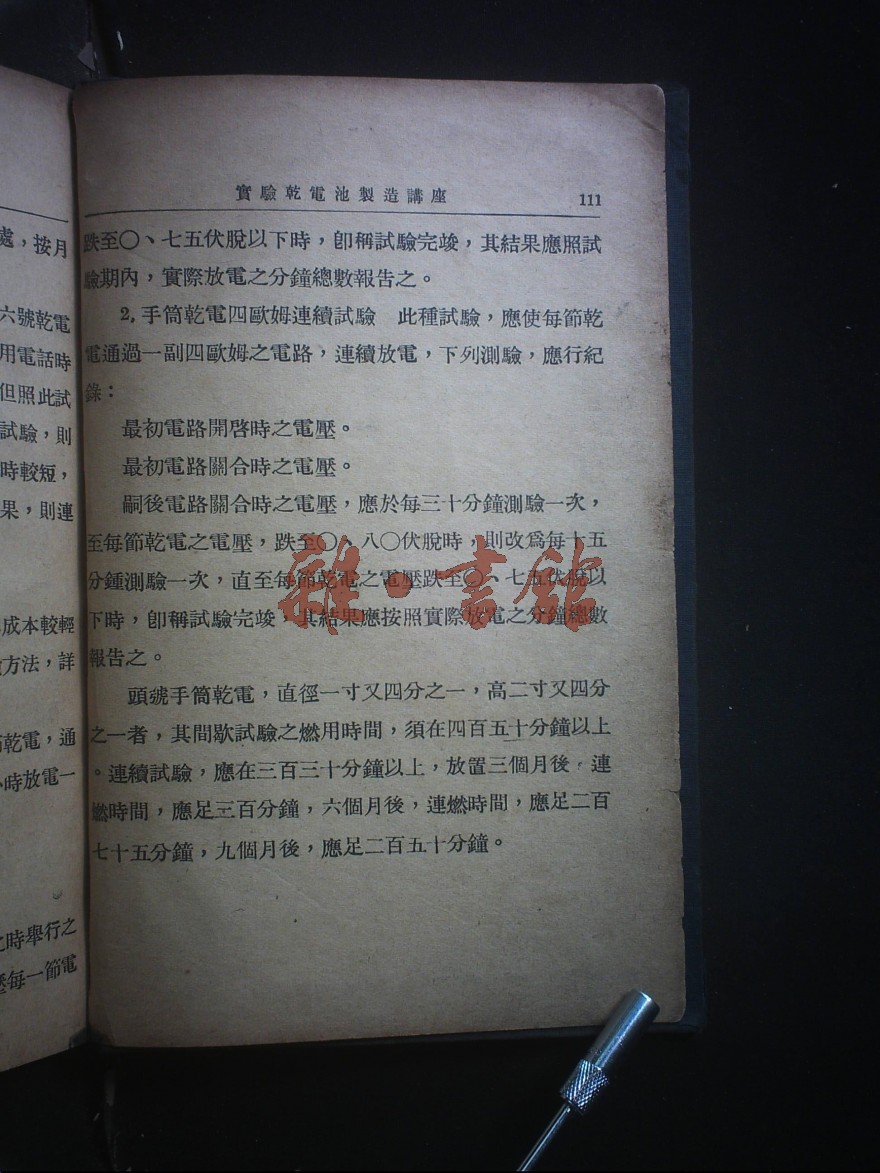 處，按月
六號乾電
用電話時
但照此試
試驗，則
時較短，
果，則連
成本較輕
方法，詳
乾電，通
小時放電一
之時舉行之
壓每一節電
實驗乾電池製造講座 111
跌至〇、七五伏脫以下時，卽稱試驗完竣，其結果應照試
驗期內，實際放電之分鐘總數報告之。
2,手筒乾電四歐姆連續試驗　此種試驗，應使每節乾
電通過一副四歐姆之電路，連續放電，下列測驗，應行紀
錄：
最初電路開啓時之電壓。
最初電路關合時之電壓。
嗣後電路關合時之電壓，應於每三十分鐘測驗一次，
至每節乾電之電壓，跌至〇、八〇伏脫時，則改爲每十五
分鍾測驗一次，直至每節乾電之電壓跌至〇、七五伏脫以
下時，卽稱試驗完竣，其結果應按照實際放電之分鐘總數
報告之。
頭號手筒乾電，直徑一寸又四分之一，高二寸又四分
之一者，其間歇試驗之燃用時間，須在四百五十分鐘以上
。連續試驗，應在三百三十分鐘以上，放置三個月後，連
燃時間，應足三百分鐘，六個月後，連燃時間，應足二百
七十五分鐘，九個月後，應足二百五十分鐘。
雜·書館